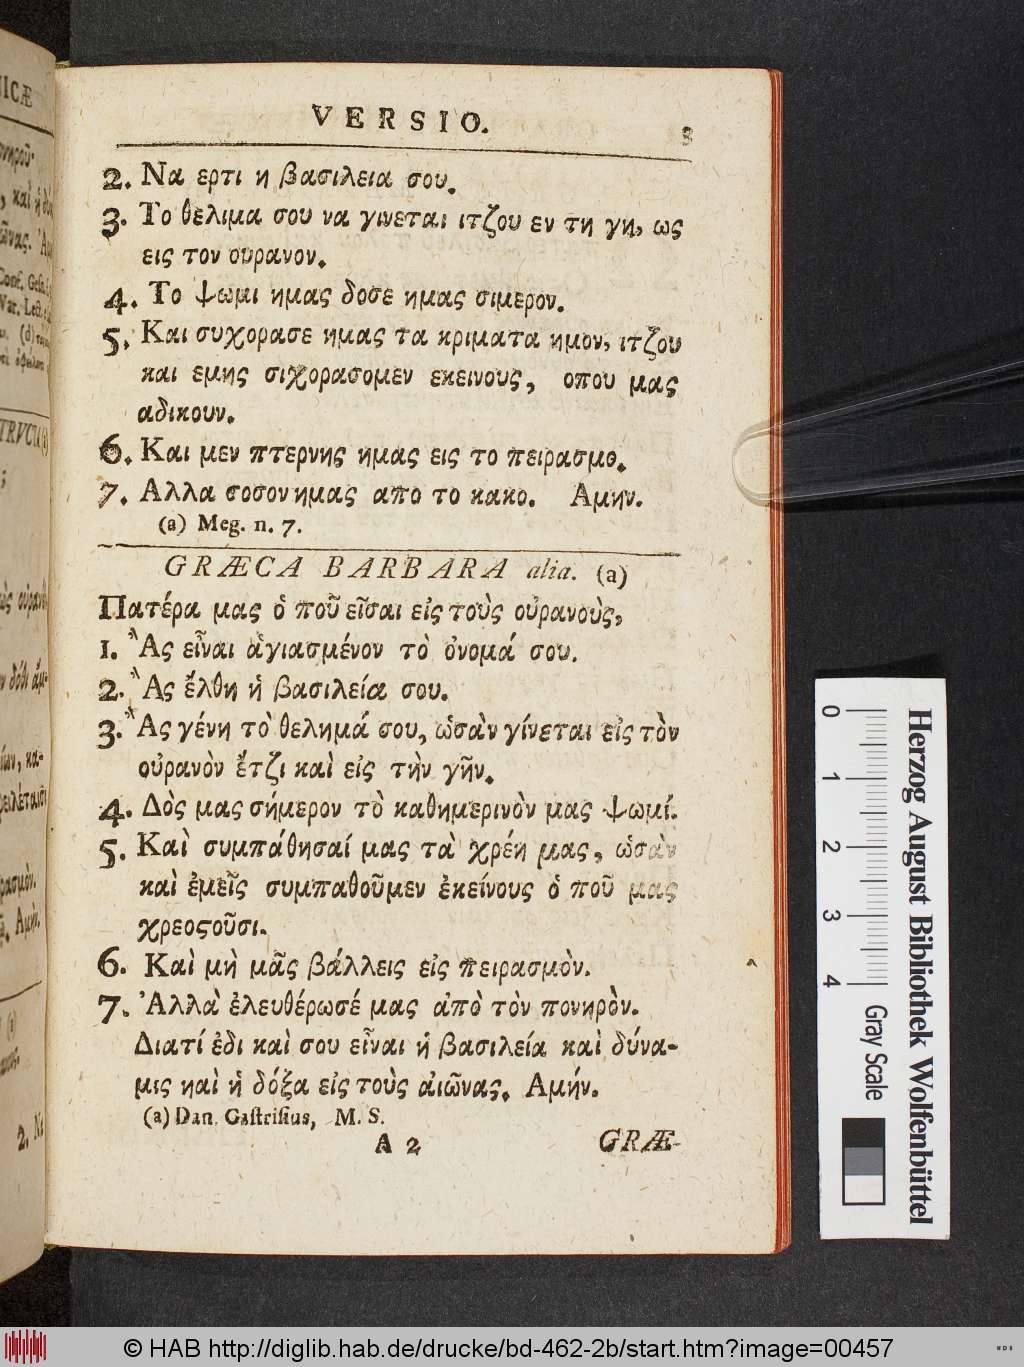 VERSIO. 3
2. Να ερτι η βασιλεια σου.
3. Το θελιμα σου να γινεται ιτζου εν τη γη, ως
εις τον ουρανον.
4. Το ψωμι ημας δοσε ημας σιμερον.
5. Και συχορασε ημας τα κριματα ημον, ιτζου
και εμης σιχορασομεν εκεινους, οπου μας
αδικουν.
6. Και μεν πτερνης ημας εις το πειρασμο.
7. Αλλα σοσον ημας απο το κακο. Αμην.
(a) Meg. n. 7.
GRÆCA BARBARA alia. (a)
Πατέρα μας ὁ ποῦ εἶσαι εἰς τοὺς οὐρανοὺς,
1. Ἂς εἶναι ἁγιασμένον τὸ ὀνομά σου.
2. Ἂς ἔλθη ἡ βασιλεία σου.
3. Ἂς γένη τὸ θελημά σου, ὡσὰν γίνεται εἰς τὸν
οὐρανὸν ἔτζι καὶ εἰς τὴν γῆν.
4. Δὸς μας σήμερον τὸ καθημερινὸν μας ψωμί.
5. Καὶ συμπάθησαί μας τὰ χρέη μας, ὡσὰν
καὶ ἐμεῖς συμπαθοῦμεν ἐκείνους ὁ ποῦ μας
χρεοςοῦσι.
6. Καὶ μὴ μᾶς βάλλεις εἰς πειρασμὸν.
7. Ἀλλὰ ἐλευθέρωσέ μας ἀπὸ τὸν πονηρὸν.
Διατί ἐδι καὶ σου εἶναι ἡ βασιλεία καὶ δύνα-
μις ηαὶ ἡ δόξα εἰς τοὺς ἀιῶνας. Αμήν.
(a) Dan. Gaſtriſius, M. S.
A 2 GRÆ-
0 1 2 3 4
Herzog August Bibliothek Wolfenbüttel
Gray Scale
© HAB http://diglib.hab.de/drucke/bd-462-2b/start.htm?image=00457